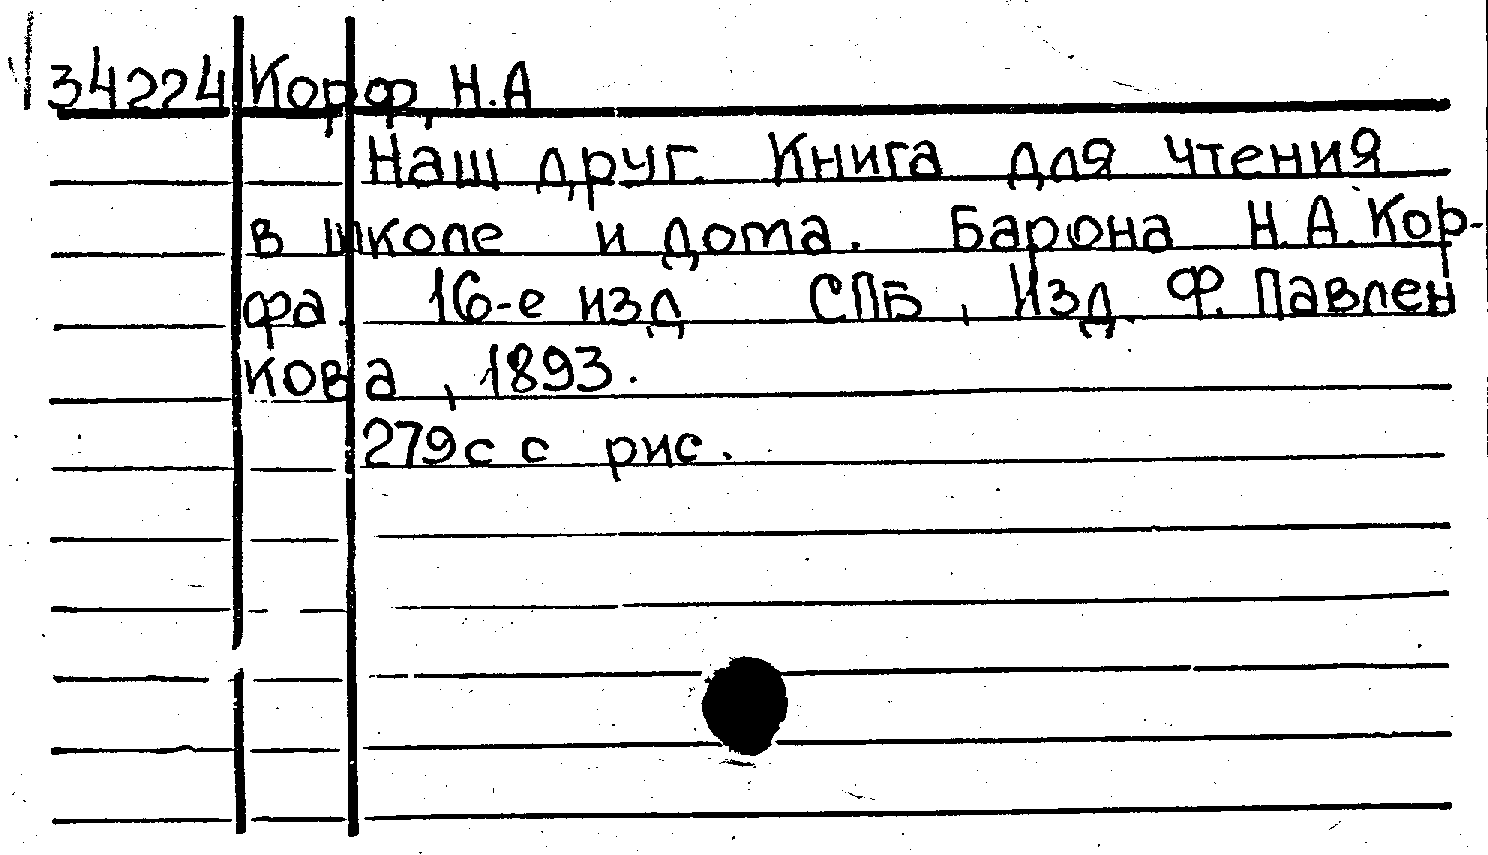 34224 Корф, Н.А
Наш друг. Книга для чтения
в школе и дома. Барона Н.А. Кор-
фа. 16-е изд СПБ, Изд. Ф. Павлен
кова, 1893.
279с с рис.